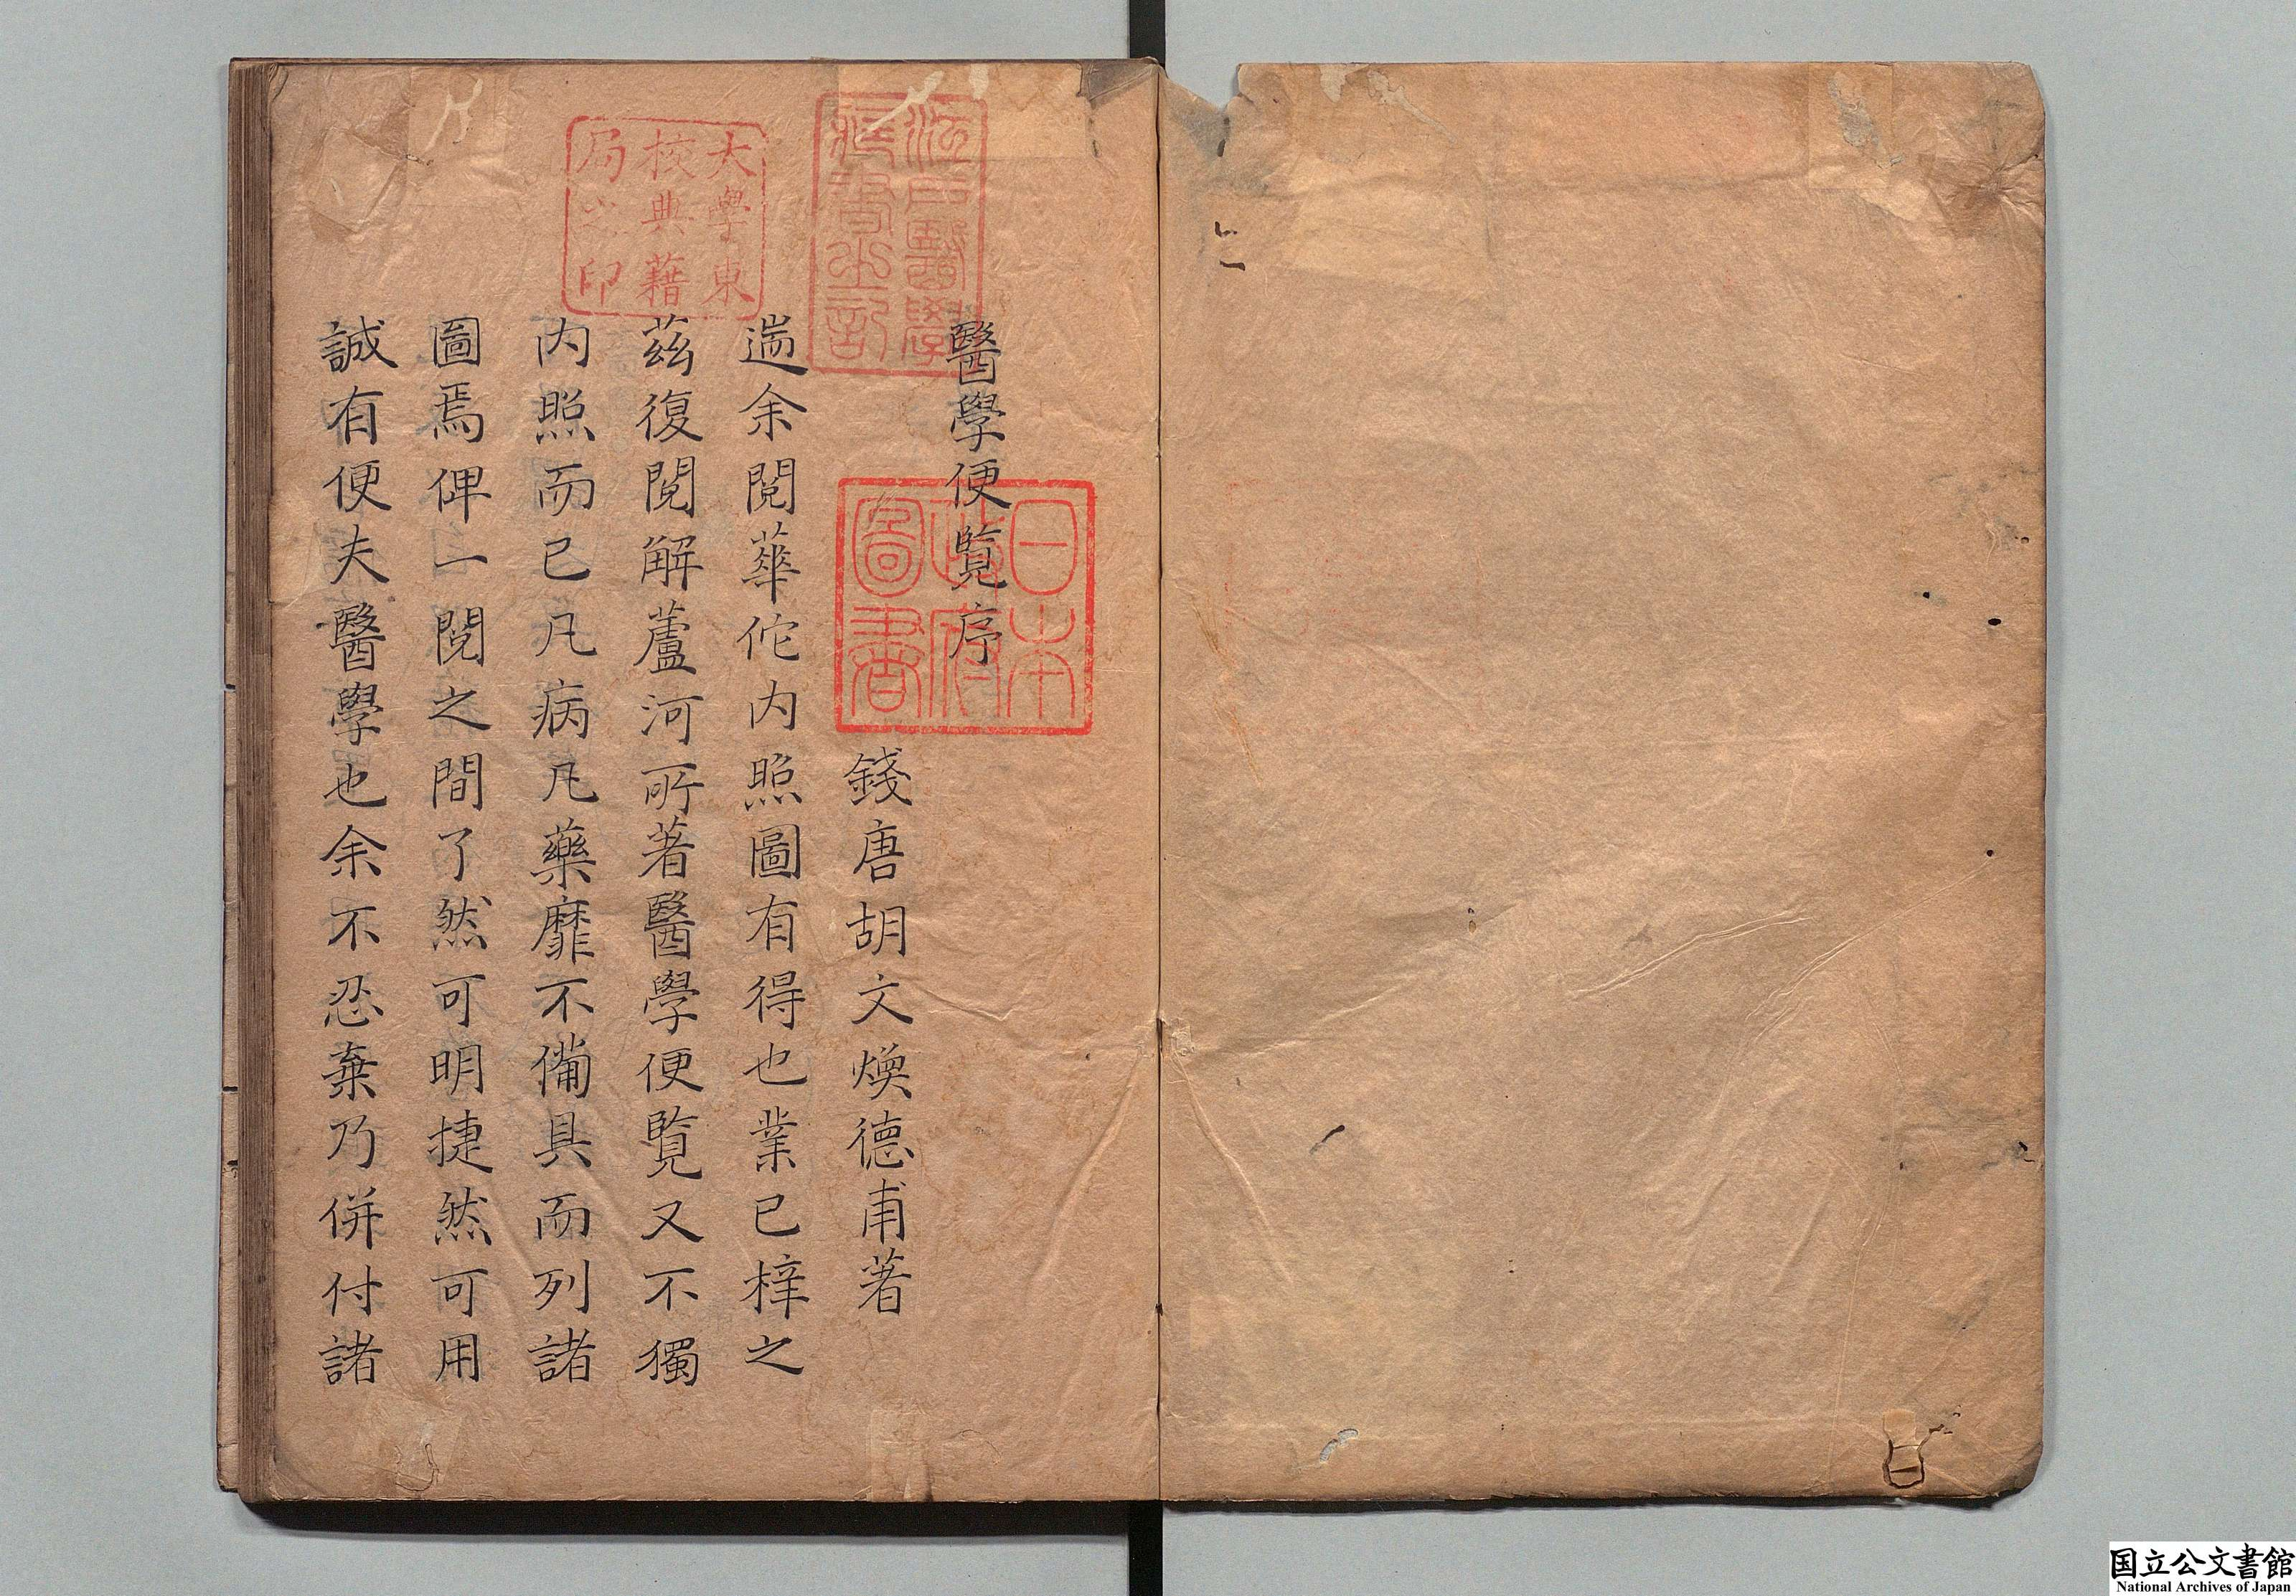 醫學便覽序
錢唐胡文煥德甫著
遄余閱華佗内照圖有得也業已梓之
茲復閱解蘆河所著醫學便覽又不獨
内照而已凡病凡藥靡不備具而列諸
圖焉俾一閱之間了然可明捷然可用
誠有便夫醫學也余不忍棄乃併付諸
江戸醫學
藏書之記
大學東
校典藉
局之印
日本
政府
圖書
国立公文書館
National Archives of Japan